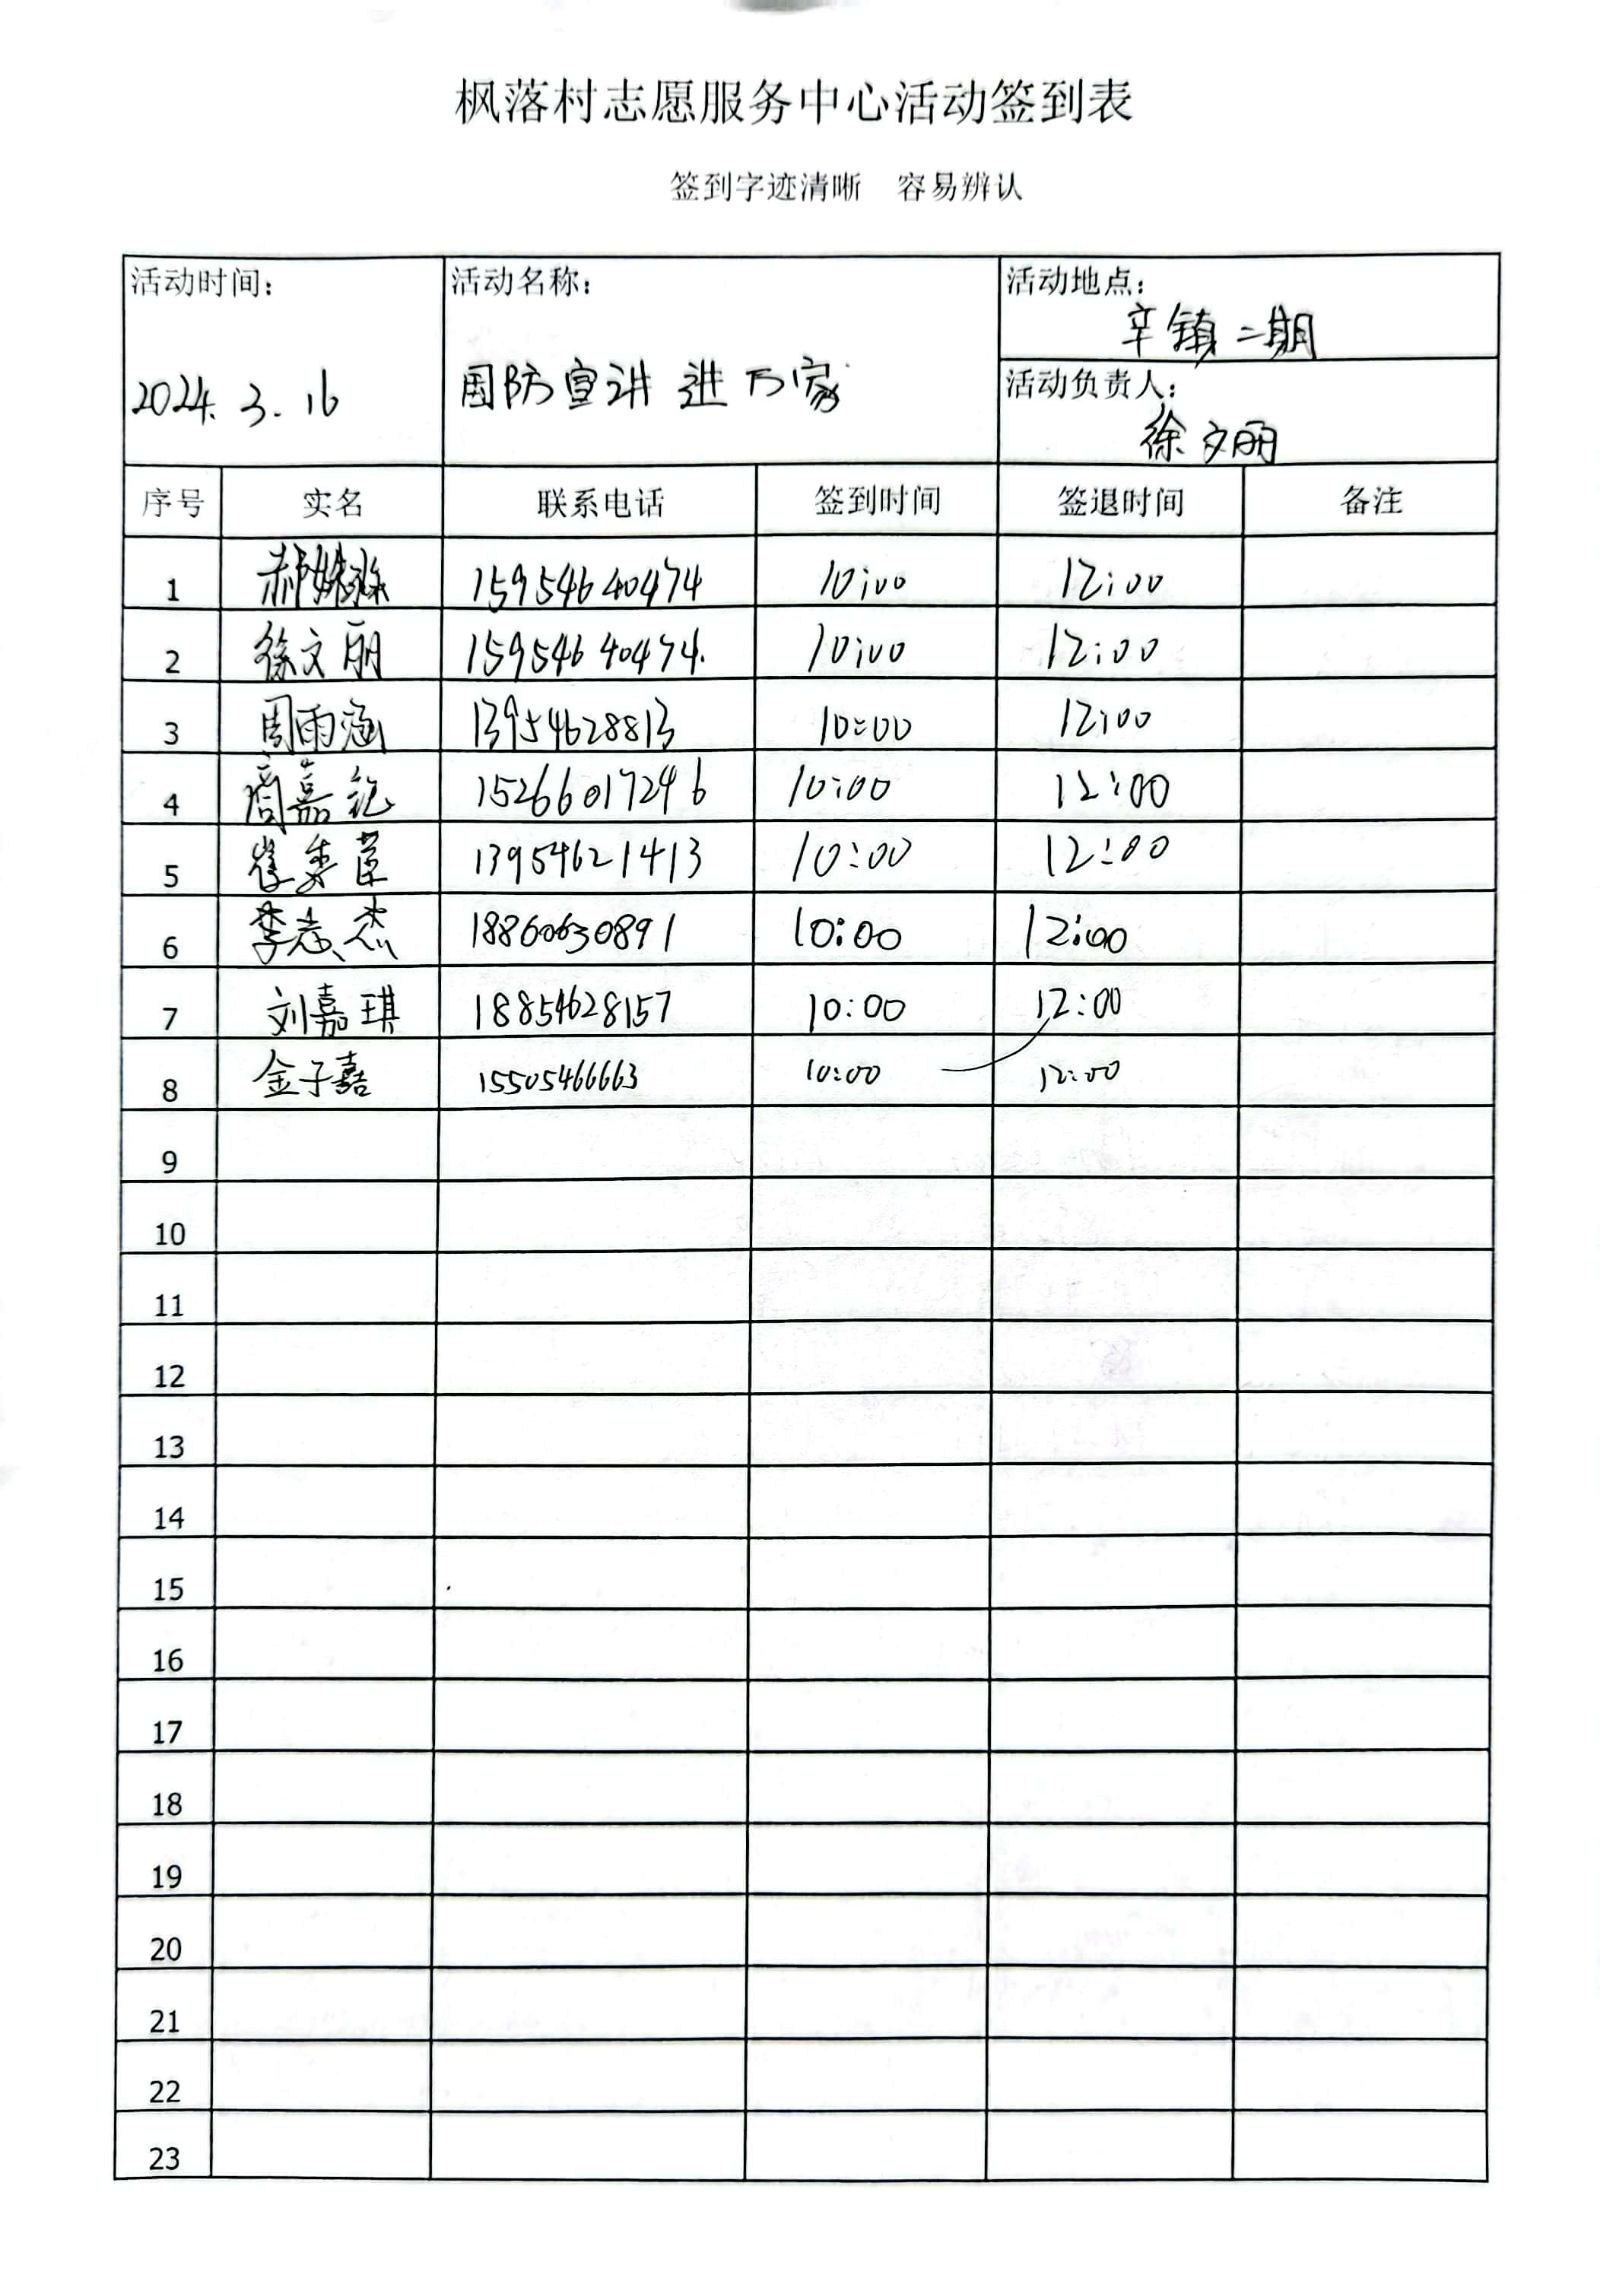 枫落村志愿服务中心活动签到表
签到字迹清晰 容易辨认
活动时间: 活动名称: 活动地点:
辛镇二期
2024.3.16 国防宣讲进万家 活动负责人:
徐文丽
序号 实名 联系电话 签到时间 签退时间 备注
1 郝姝 15954640474 10:00 12:00
2 徐文丽 15954640474. 10:00 12:00
3 周雨涵 13954628813 10:00 12:00
4 商嘉 15266017246 10:00 12:00
5 崔 13954621413 10:00 12:00
6 李志杰 18860630891 10:00 12:00
7 刘嘉琪 18854628157 10:00 12:00
8 金子嘉 15505466663 10:00 12:00
9
10
11
12
13
14
15
16
17
18
19
20
21
22
23